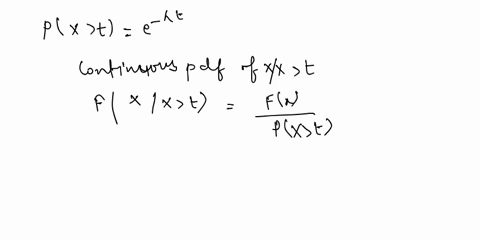 P(x>t) = e^-λt
Continuous pdf of x/x>t
F( x / x>t) = F(x) / P(X>t)